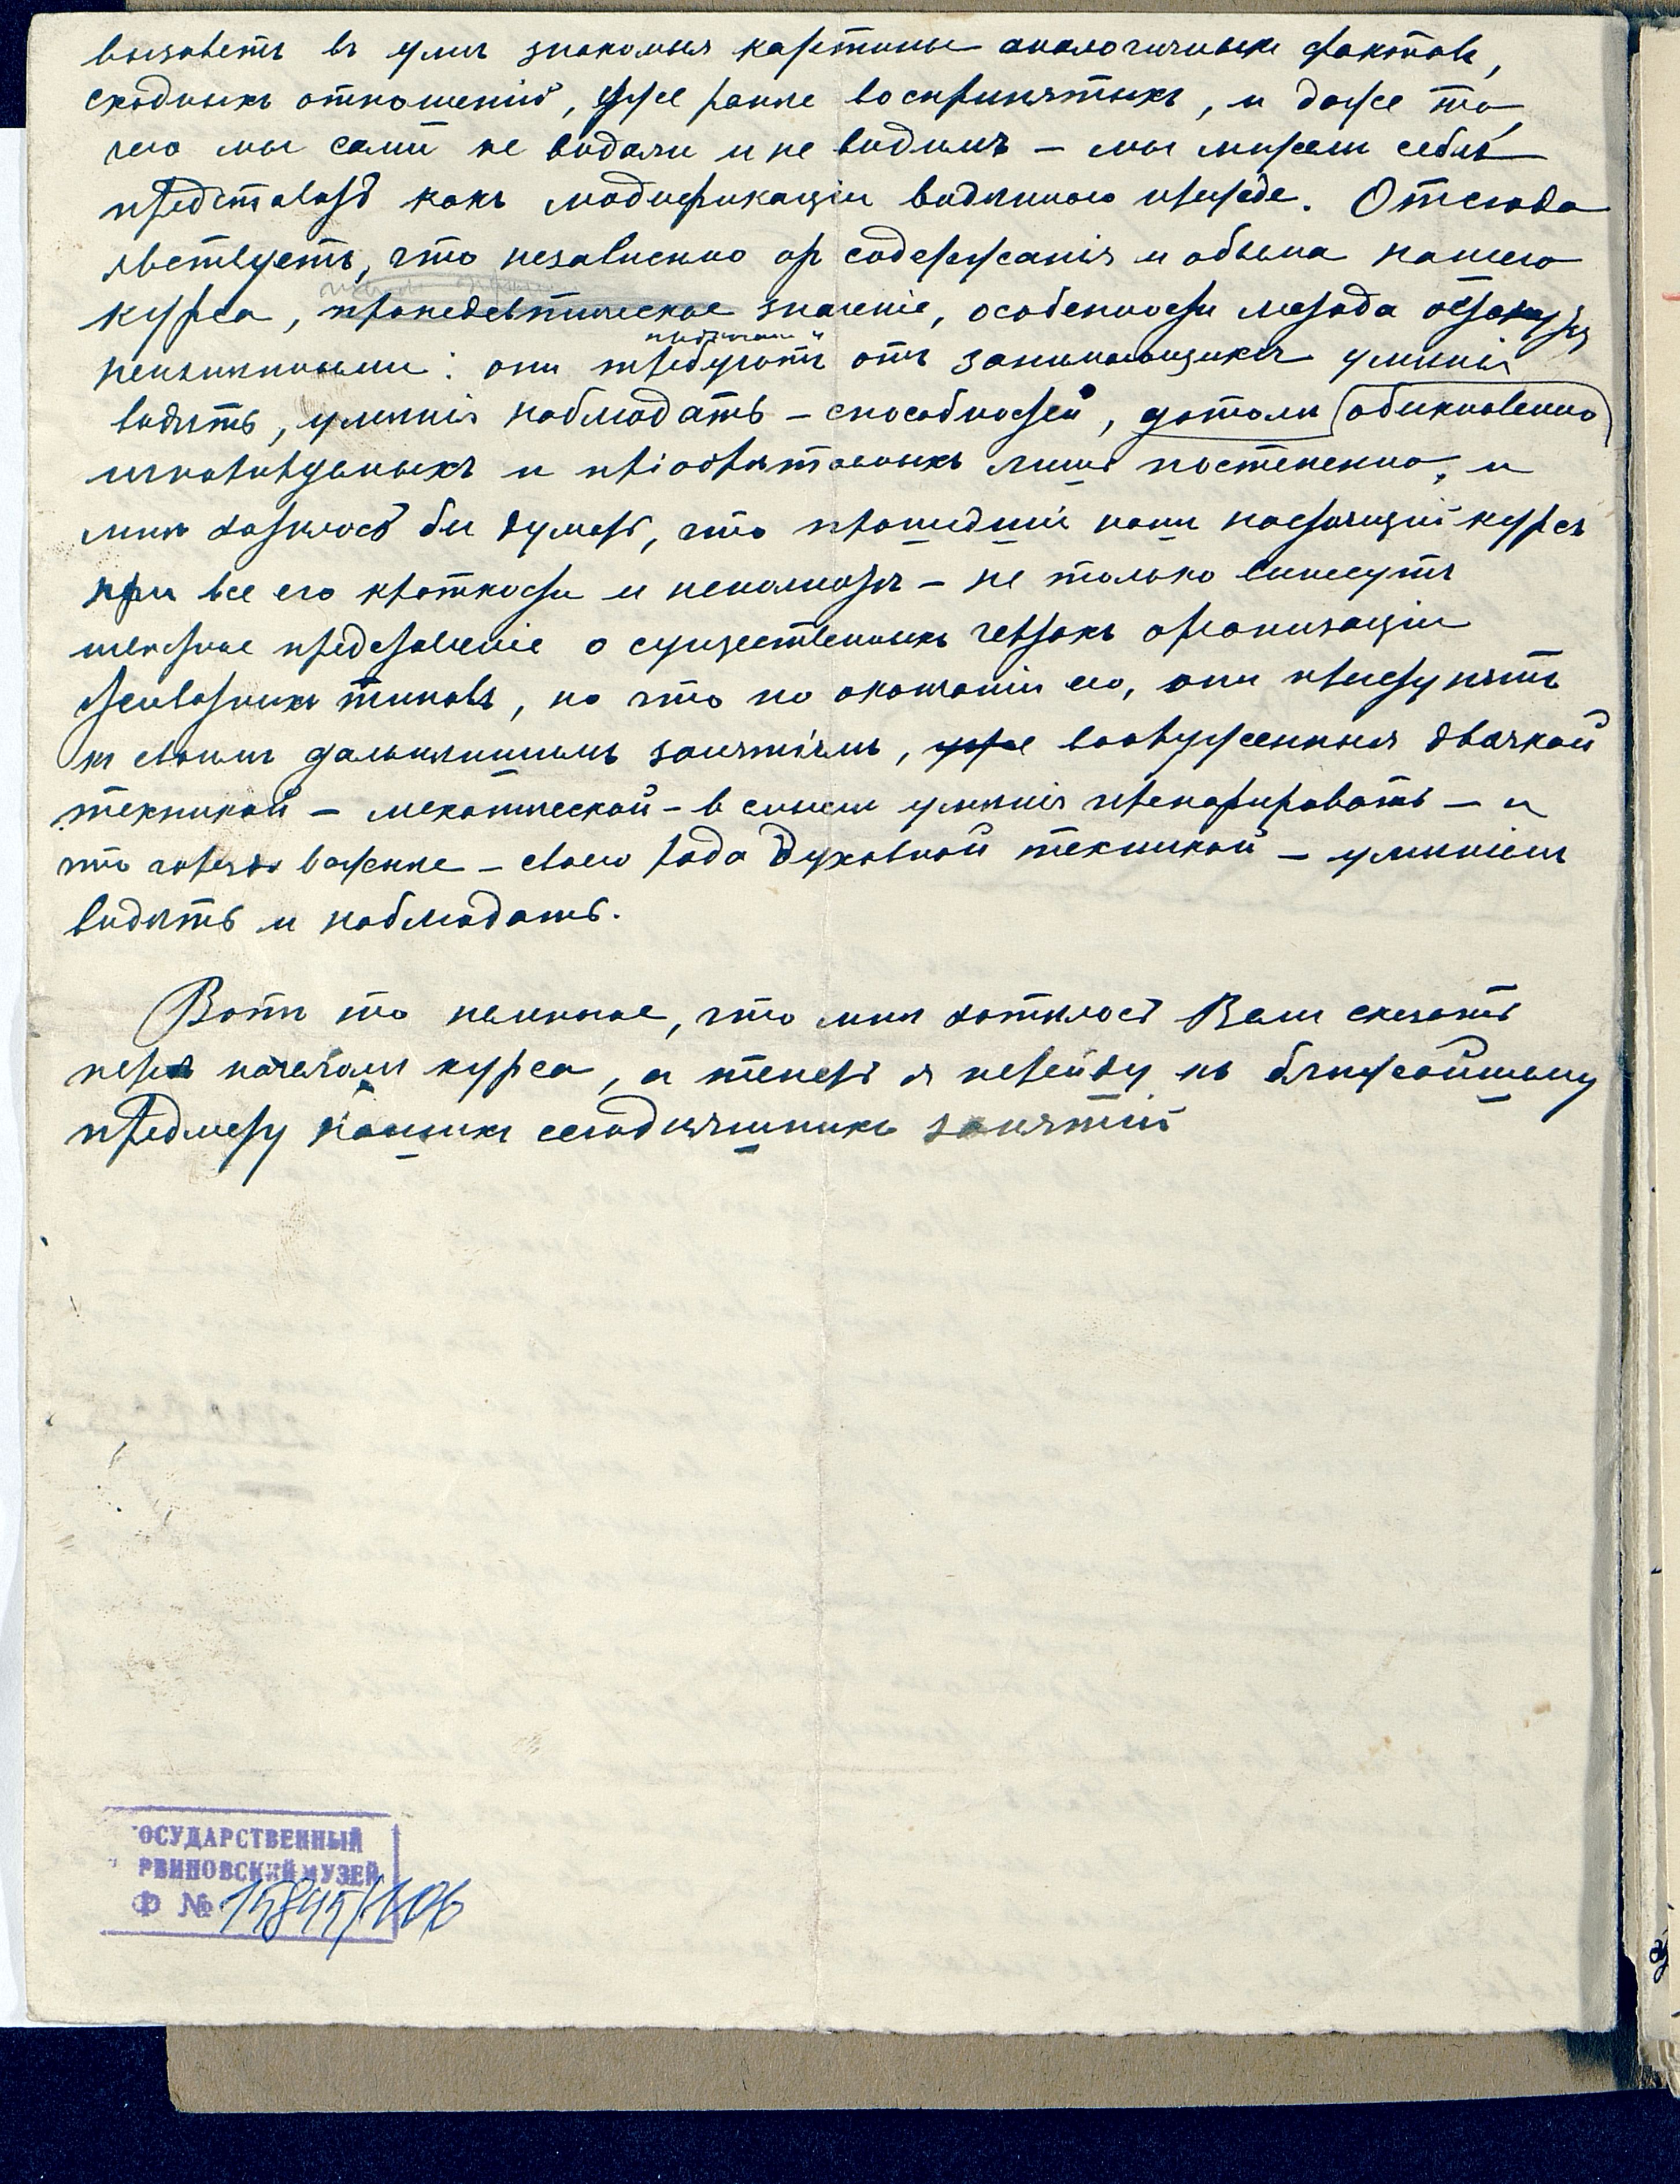 вызоветъ въ умѣ знакомыя картины аналогичныхъ фактовъ,
сходныхъ отношенiй, уже ранѣе воспринятыхъ, и даже то,
чего мы сами не видали и не видимъ – мы можемъ себѣ
представить какъ модификацiи видѣннаго прежде. Отсюда
явствуетъ, что независимо от содержанiя и объема нашего
курса, пропедевтическое значенiе, особенности метода остаются
неизмѣнными: они требуютъ отъ занимающихся умѣнiя
видѣть, умѣнiя наблюдать – способностей, дотолѣ обыкновенно
игнорируемыхъ и прiобрѣтаемыхъ лишь постепенно, и
мнѣ хотѣлось бы думать, что прошедшiе нашъ настоящiй курсъ
при все его краткости и неполнотѣ – не только вынесутъ
представленiе о существенныхъ чертахъ организацiи
животныхъ типовъ, но что по окончанiи его, они приступятъ
къ своимъ дальнѣйшимъ занятiямъ, уже вооруженныя двоякой
техникой – механической – в смыслѣ умѣнiя препарировать – и
что гораздо важнѣе – своего рода духовной техникой – умѣнiемъ
видѣть и наблюдать.
Вотъ то немногое, что мнѣ хотѣлось Вамъ сказать
передъ началомъ курса, а теперь я перейду къ ближайшему
предмету нашихъ сегодняшнихъ занятiй
ОСУДАРСТВЕННЫЙ
РВИНОВСКИЙ МУЗЕЙ
Ф № 15845/1106